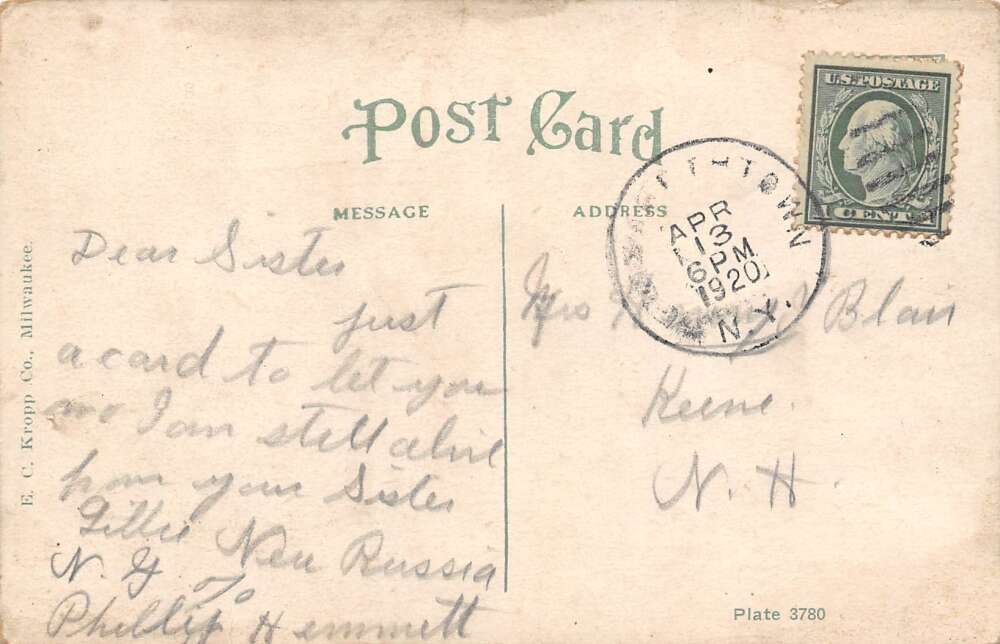 Post Card
MESSAGE
ADDRESS
U.S. POSTAGE
1 CENT 1
APR
13
6 PM
1920
N.Y.
Dear Sister
just
a card to let you
no I am still alive
from your Sister
Lillie New Russia
N. Y %
Phillip Hemmett
Mrs Blair
Keene.
N. H.
E. C. Kropp Co., Milwaukee.
Plate 3780